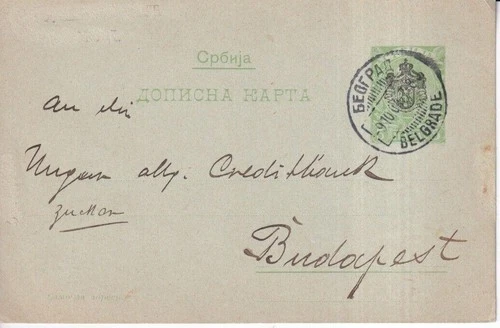 Србија
ДОПИСНА КАРТА
БЕОГРАД
BELGRADE
An die
Ungar. allg. Creditbank
Budapest